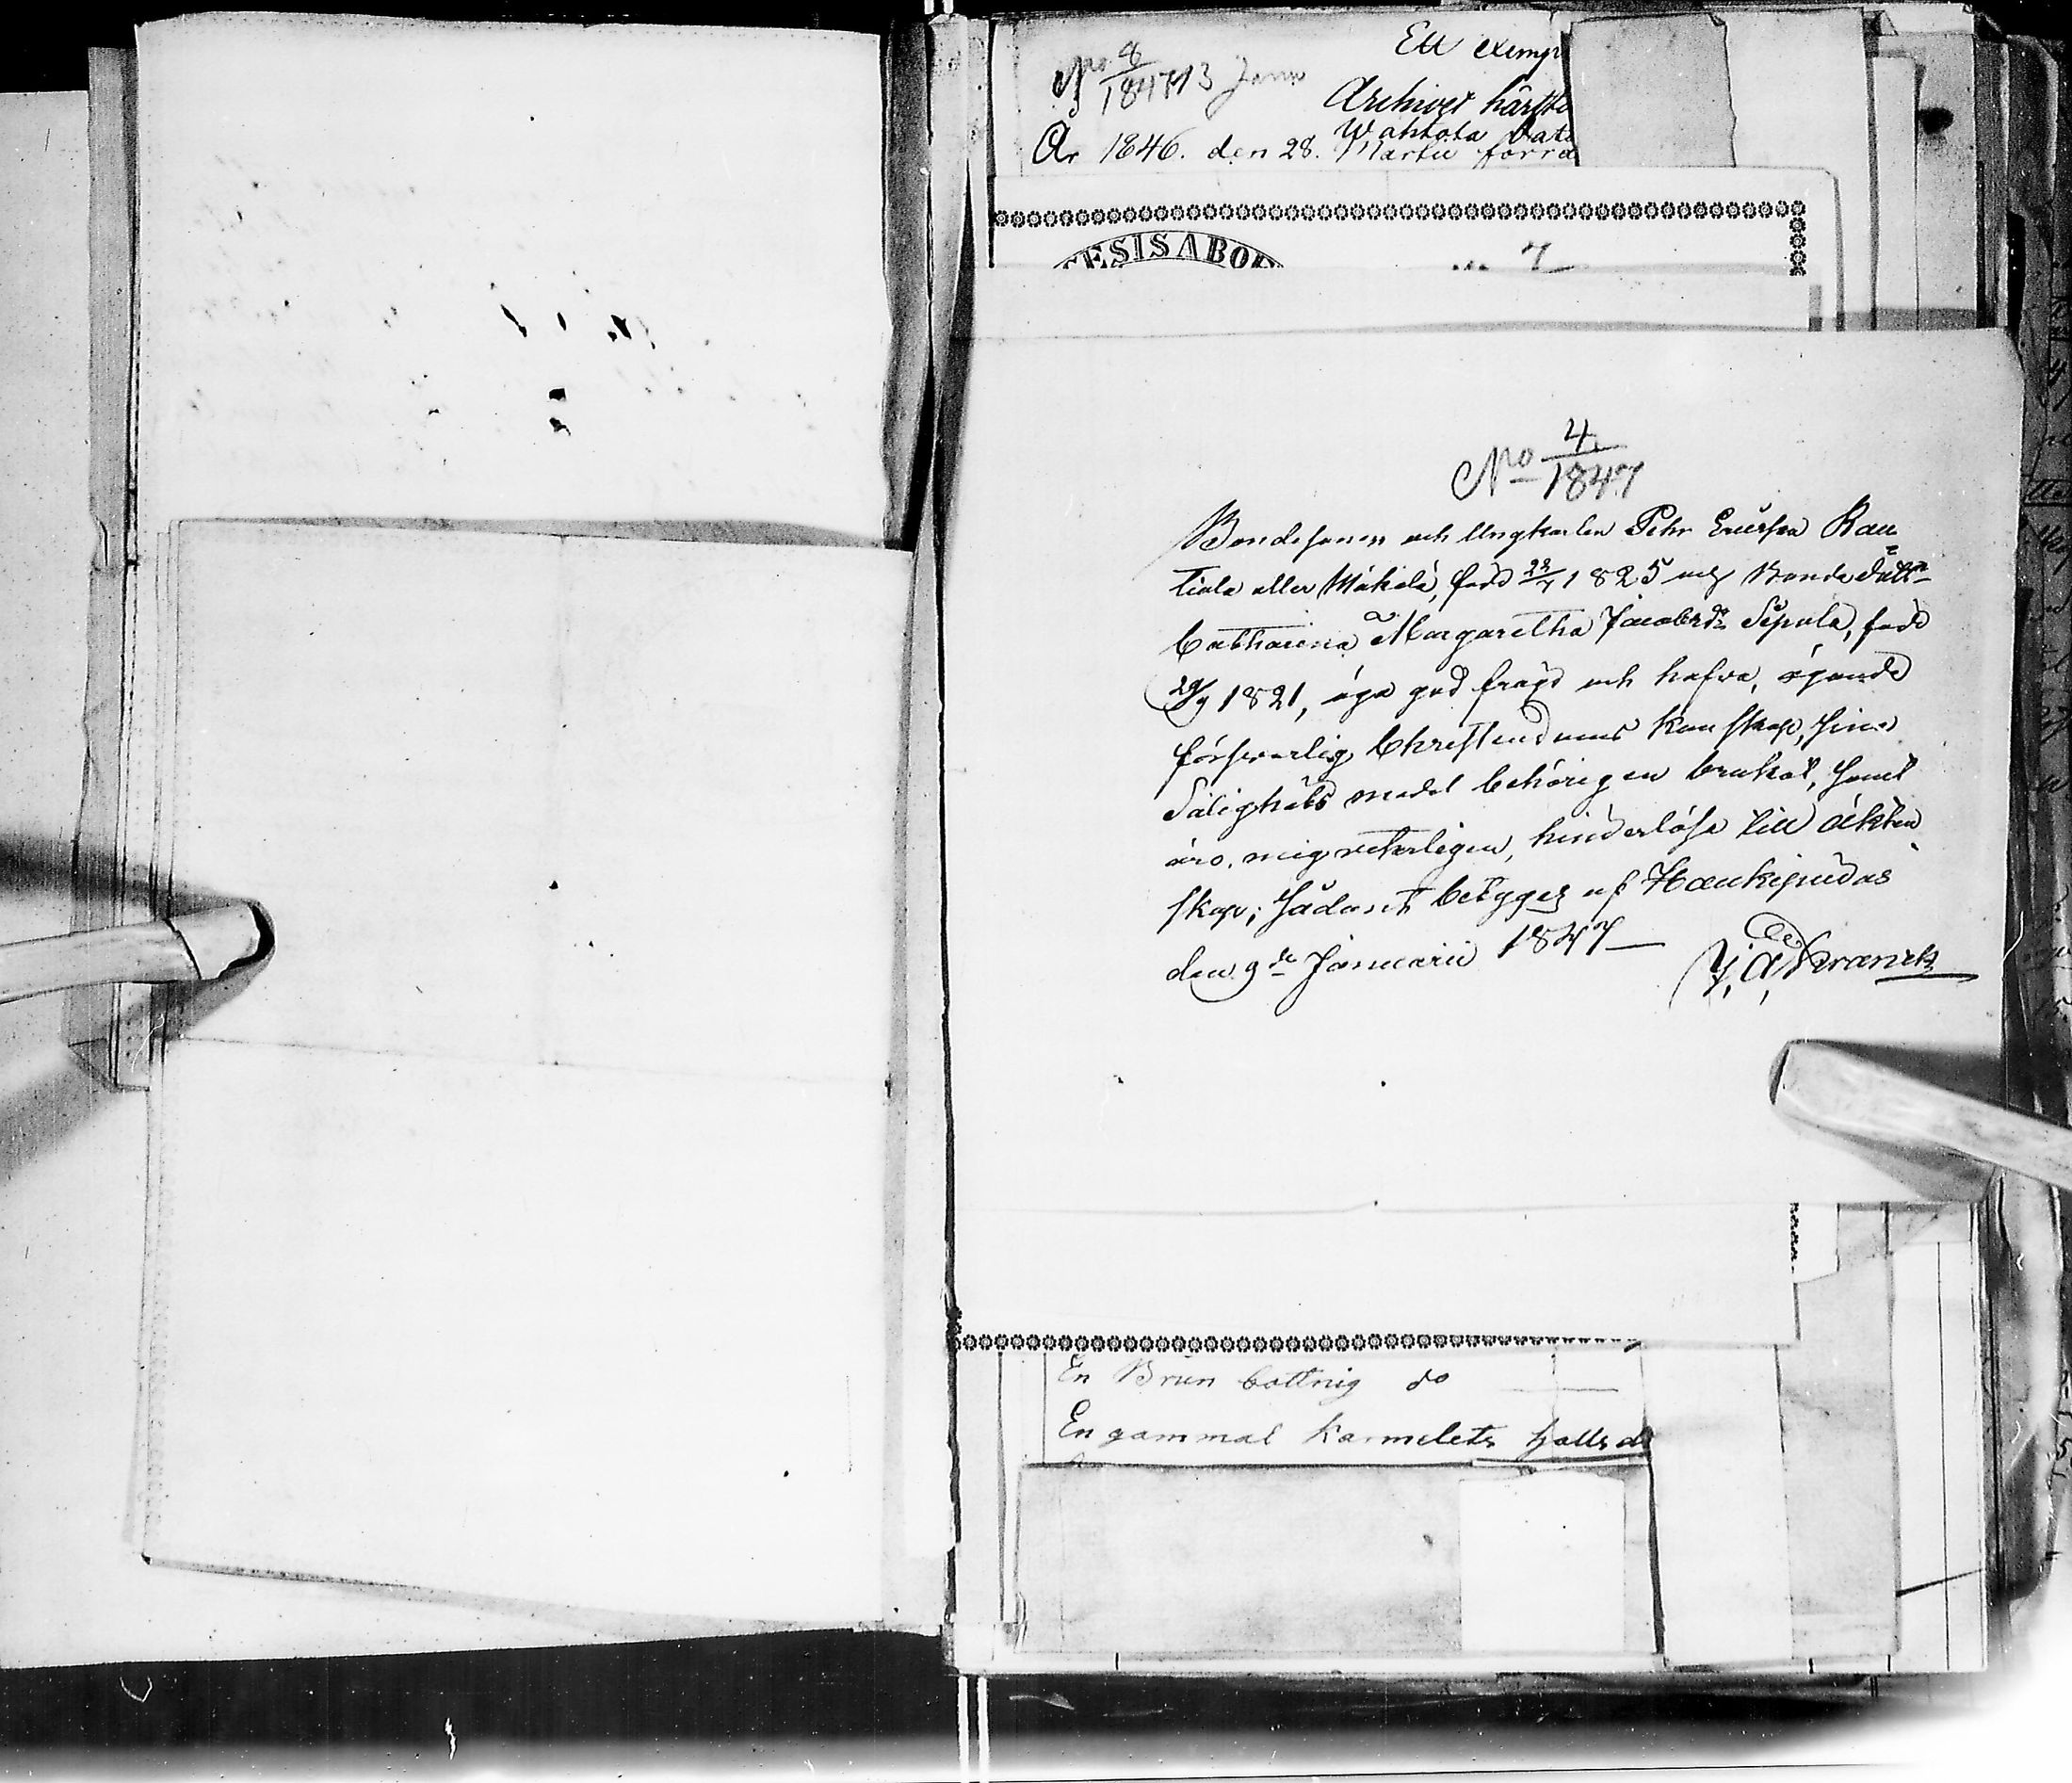 No 8/1847 13 Janu
Ett exempl
Archivet härstä
Wahtola
År 1846. den 28. Martii förra
ESIS ABO
7
No 4/1847
Bondesonen och Ungkarlen Pehr Ericsson Rau=
tiola eller Mäkelä, född 22/7 1825 och Bonde dottn
Catharina Margaretha Jacobsdr Sipola, född
29/9 1821, äga god frägd och hafva, ägande
försvarlig Christendoms kunskap, sina
Salighets medel behörigen brukat, samt
äro, mig veterligen, hinderlösa till äkten
skap; Sådant betygges af Haukipudas
den 9de Januarii 1847 —
J, A, Franck
En Brun Cottnig do
En gammal Kamelots halls d